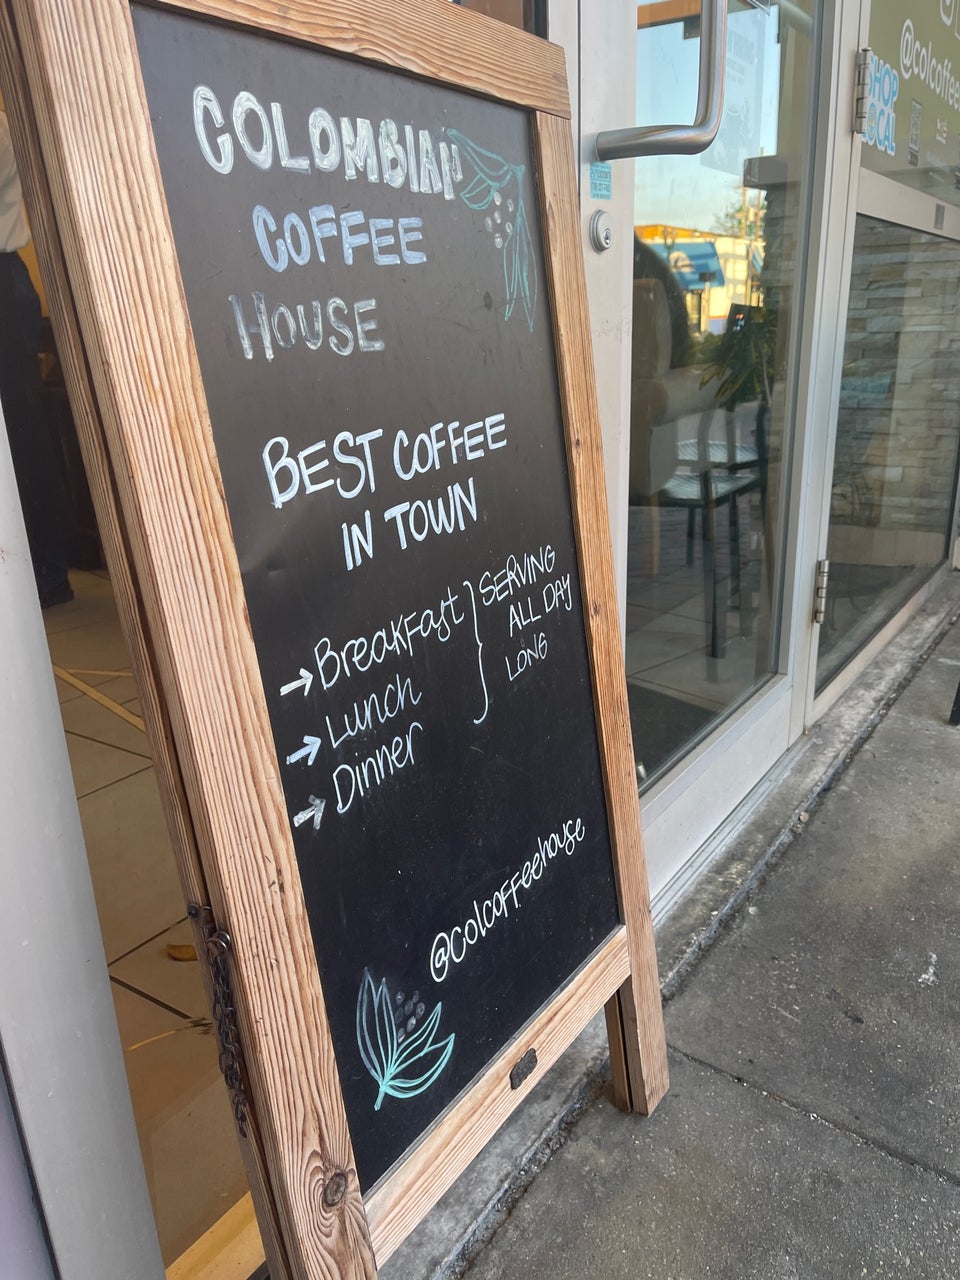 COLOMBIAN
COFFEE
HOUSE
BEST COFFEE
IN TOWN
→ Breakfast
→ Lunch
→ Dinner
} SERVING
ALL DAY
LONG
@colcoffeehouse
@colcoffee
SHOP
LOCAL